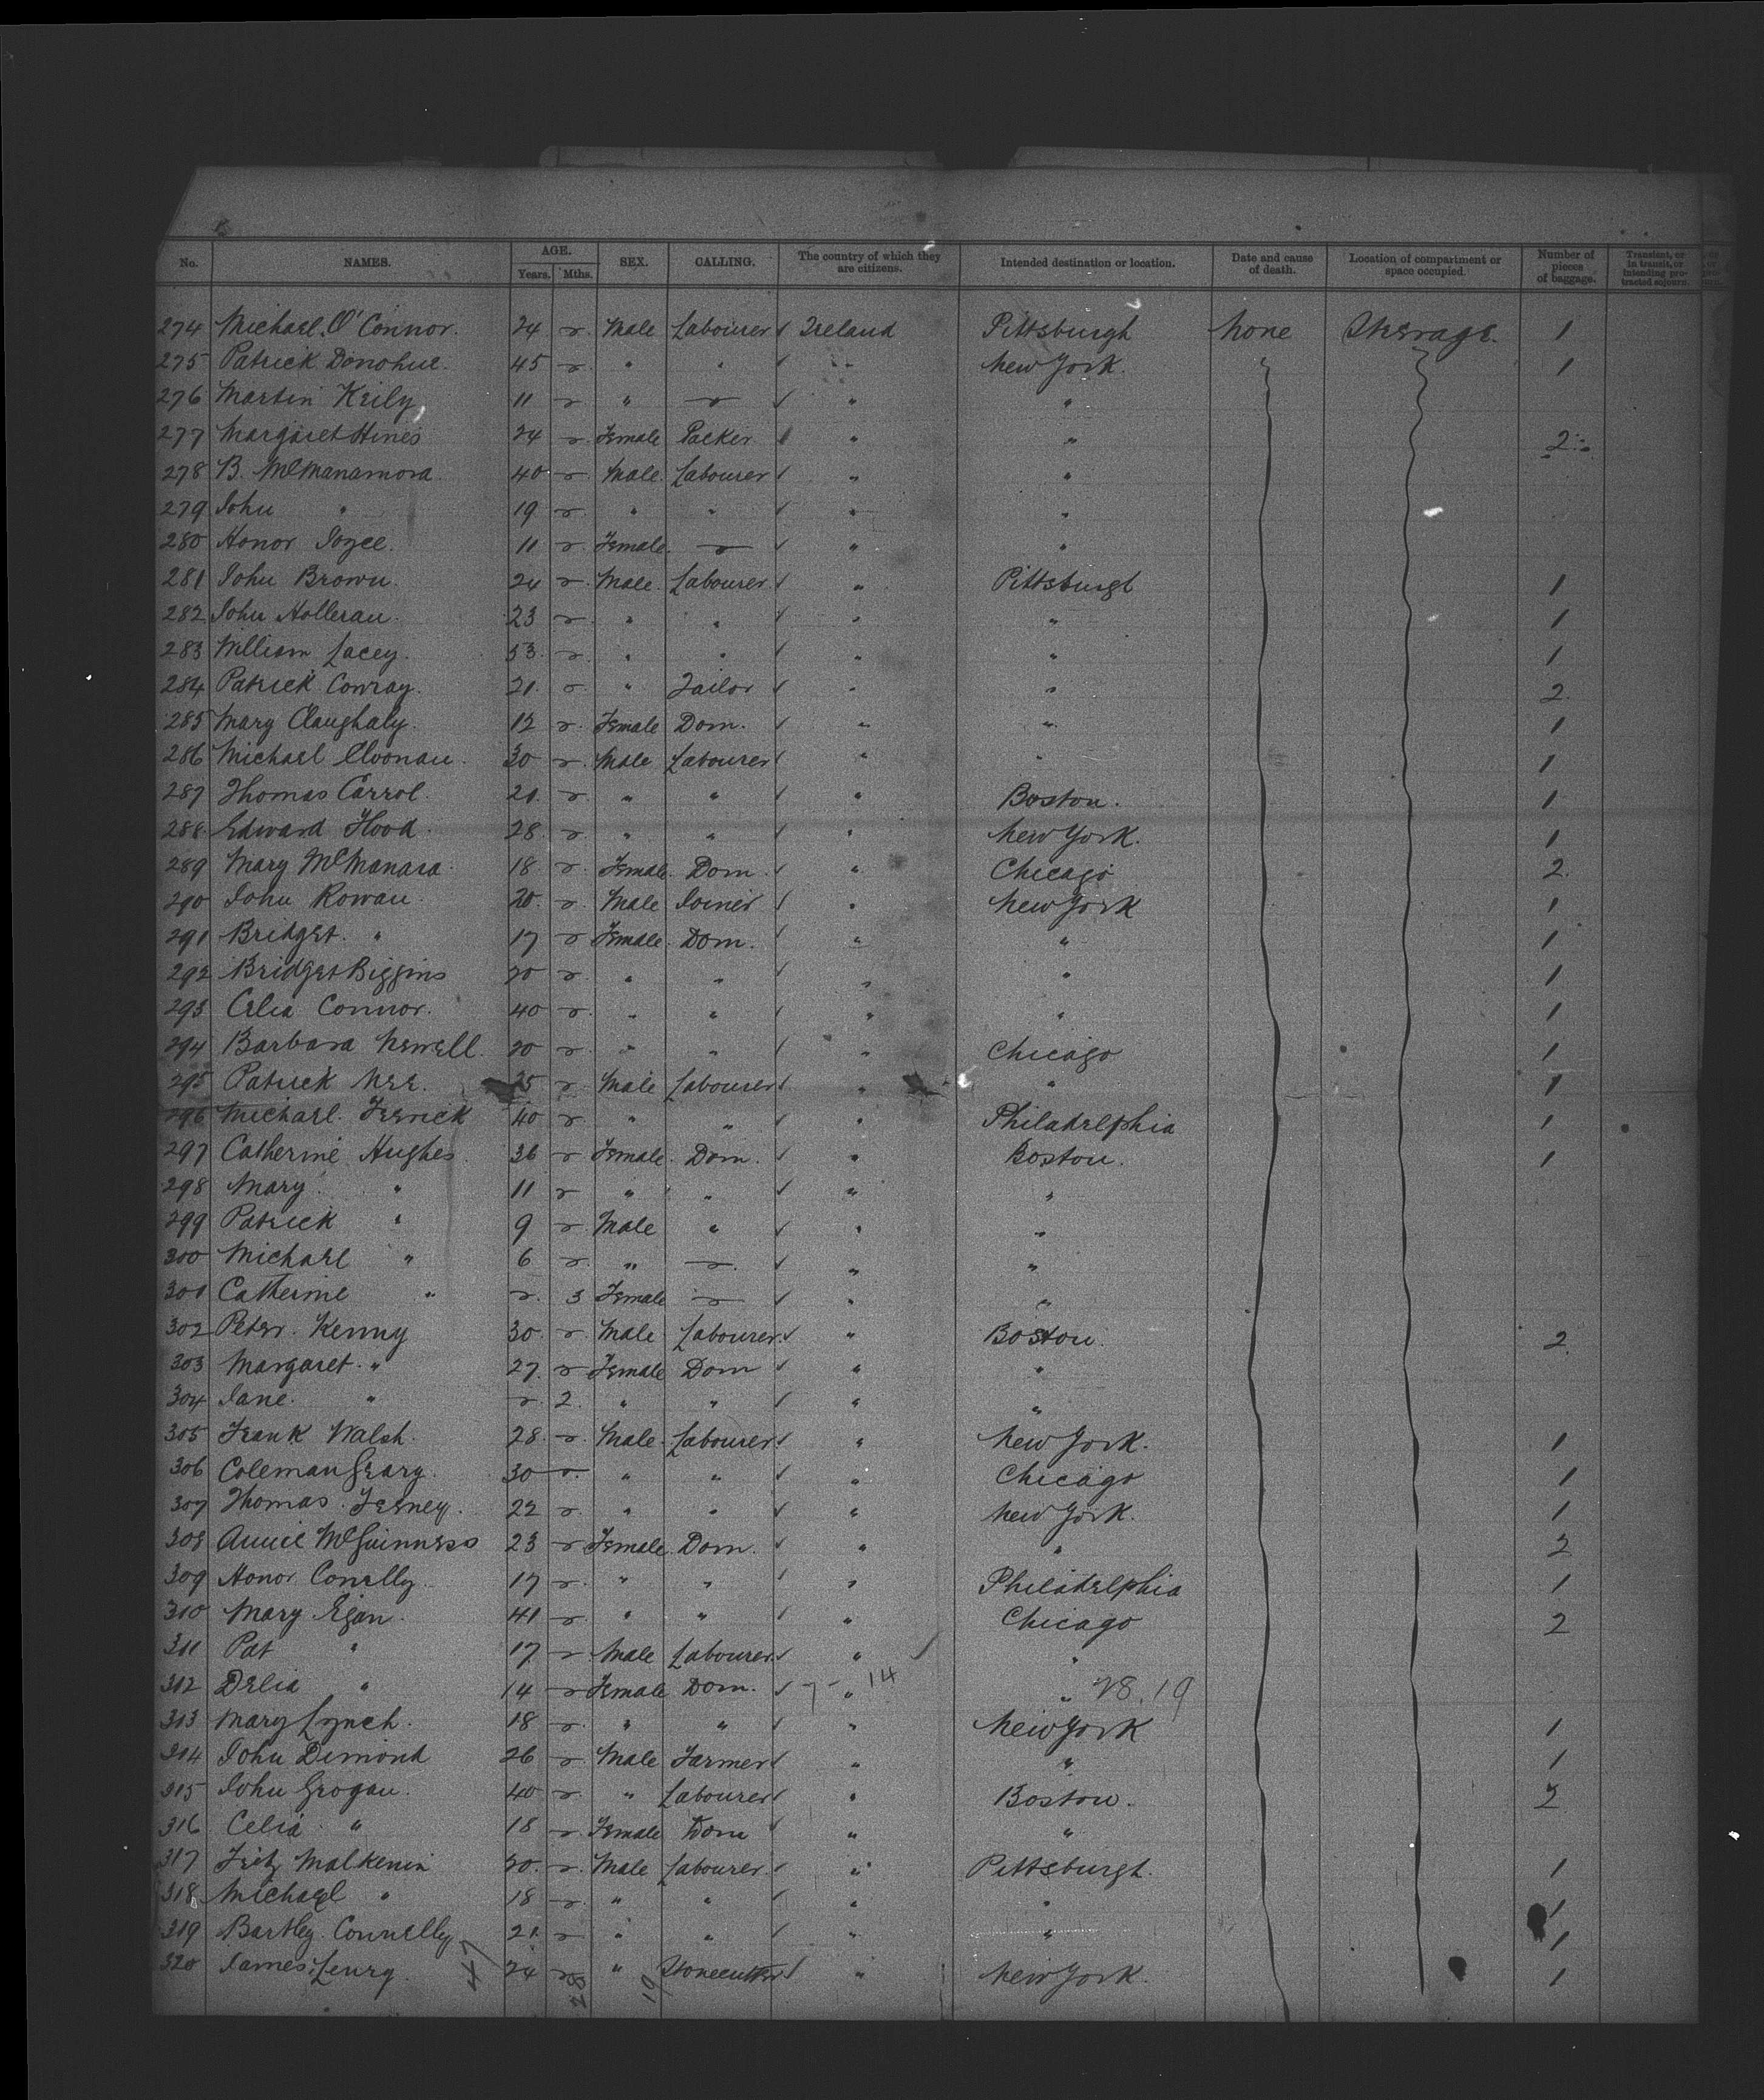 No. NAMES. AGE. Years. Mths. SEX. CALLING. The country of which they are citizens. Intended destination or location. Date and cause of death. Location of compartment or space occupied. Number of pieces of baggage. Transient, or in transit, or intending protracted sojourn.
274 Michael O'Connor. 24 Male Labourer Ireland Pittsburgh None Steerage. 1
275 Patrick Donohue. 45 " " " New York. 1
276 Martin Keily 11 " " "
277 Margaret Hines 24 Female Packer " " 2
278 B. McManamora 40 Male. Labourer " "
279 John " 19 " " " "
280 Honor Joyce. 11 Female. " "
281 John Brown. 24 Male. Labourer " Pittsburgh 1
282 John Holleran. 23 " " " " 1
283 William Lacey. 53. " " " " 1
284 Patrick Conray. 21. " Tailor " " 2
285 Mary Claughaly. 12 Female Dom. " " 1
286 Michael Cloonan. 30 Male Labourer " " 1
287 Thomas Carrol. 21. " " " Boston. 1
288. Edward Flood. 28. " " " New York. 1
289 Mary McManara. 18. Female. Dom. " Chicago 2.
290 John Rowan. 20. Male Joiner " New York 1
291 Bridget. " 17 Female. Dom. " " 1
292 Bridget Biggins 20 " " " " 1
293 Celia Connor. 40 " " " " 1
294 Barbara Newell. 20 " " " Chicago 1
295 Patrick Nee. 25 Male Labourer " " 1
296 Michael. Ferrick 40 " " " Philadelphia 1
297 Catherine Hughes. 36 Female. Dom. " Boston. 1
298 Mary. " 11 " " " "
299 Patrick " 9 Male " " "
300 Michael " 6 " " "
301 Catherine " 3 Female " "
302 Peter. Kenny 30. Male Labourer. " Boston. 2.
303 Margaret. " 27. Female Dom " "
304 Jane. " 2. " " " "
305 Frank Walsh. 28. Male. Labourer " New York. 1
306 Coleman Geary. 30 " " " Chicago 1
307 Thomas. Feeney. 22 " " " New York. 1
308 Annie McGuinness 23 Female. Dom. " " 2
309 Honor Conelly. 17 " " " Philadelphia 1
310 Mary Egan. 41 " " " Chicago 2
311 Pat " 17. Male Labourer. " "
312 Delia " 14 Female Dom. " 14 " 28.19
313 Mary Lynch. 18 " " " New York 1
314 John Dimond 26 Male Farmer " " 1
315 John Grogan. 40 " Labourer " Boston. 2
316 Celia " 18 Female Dom " "
317 Fritz Malkenin 20. Male Labourer. " Pittsburgh. 1
318 Michael " 18 " " " " 1
319 Bartley Connelly 21. " " " " 1
320 James Leury. 24 " Stonecutter " New York. 1
47 28 19